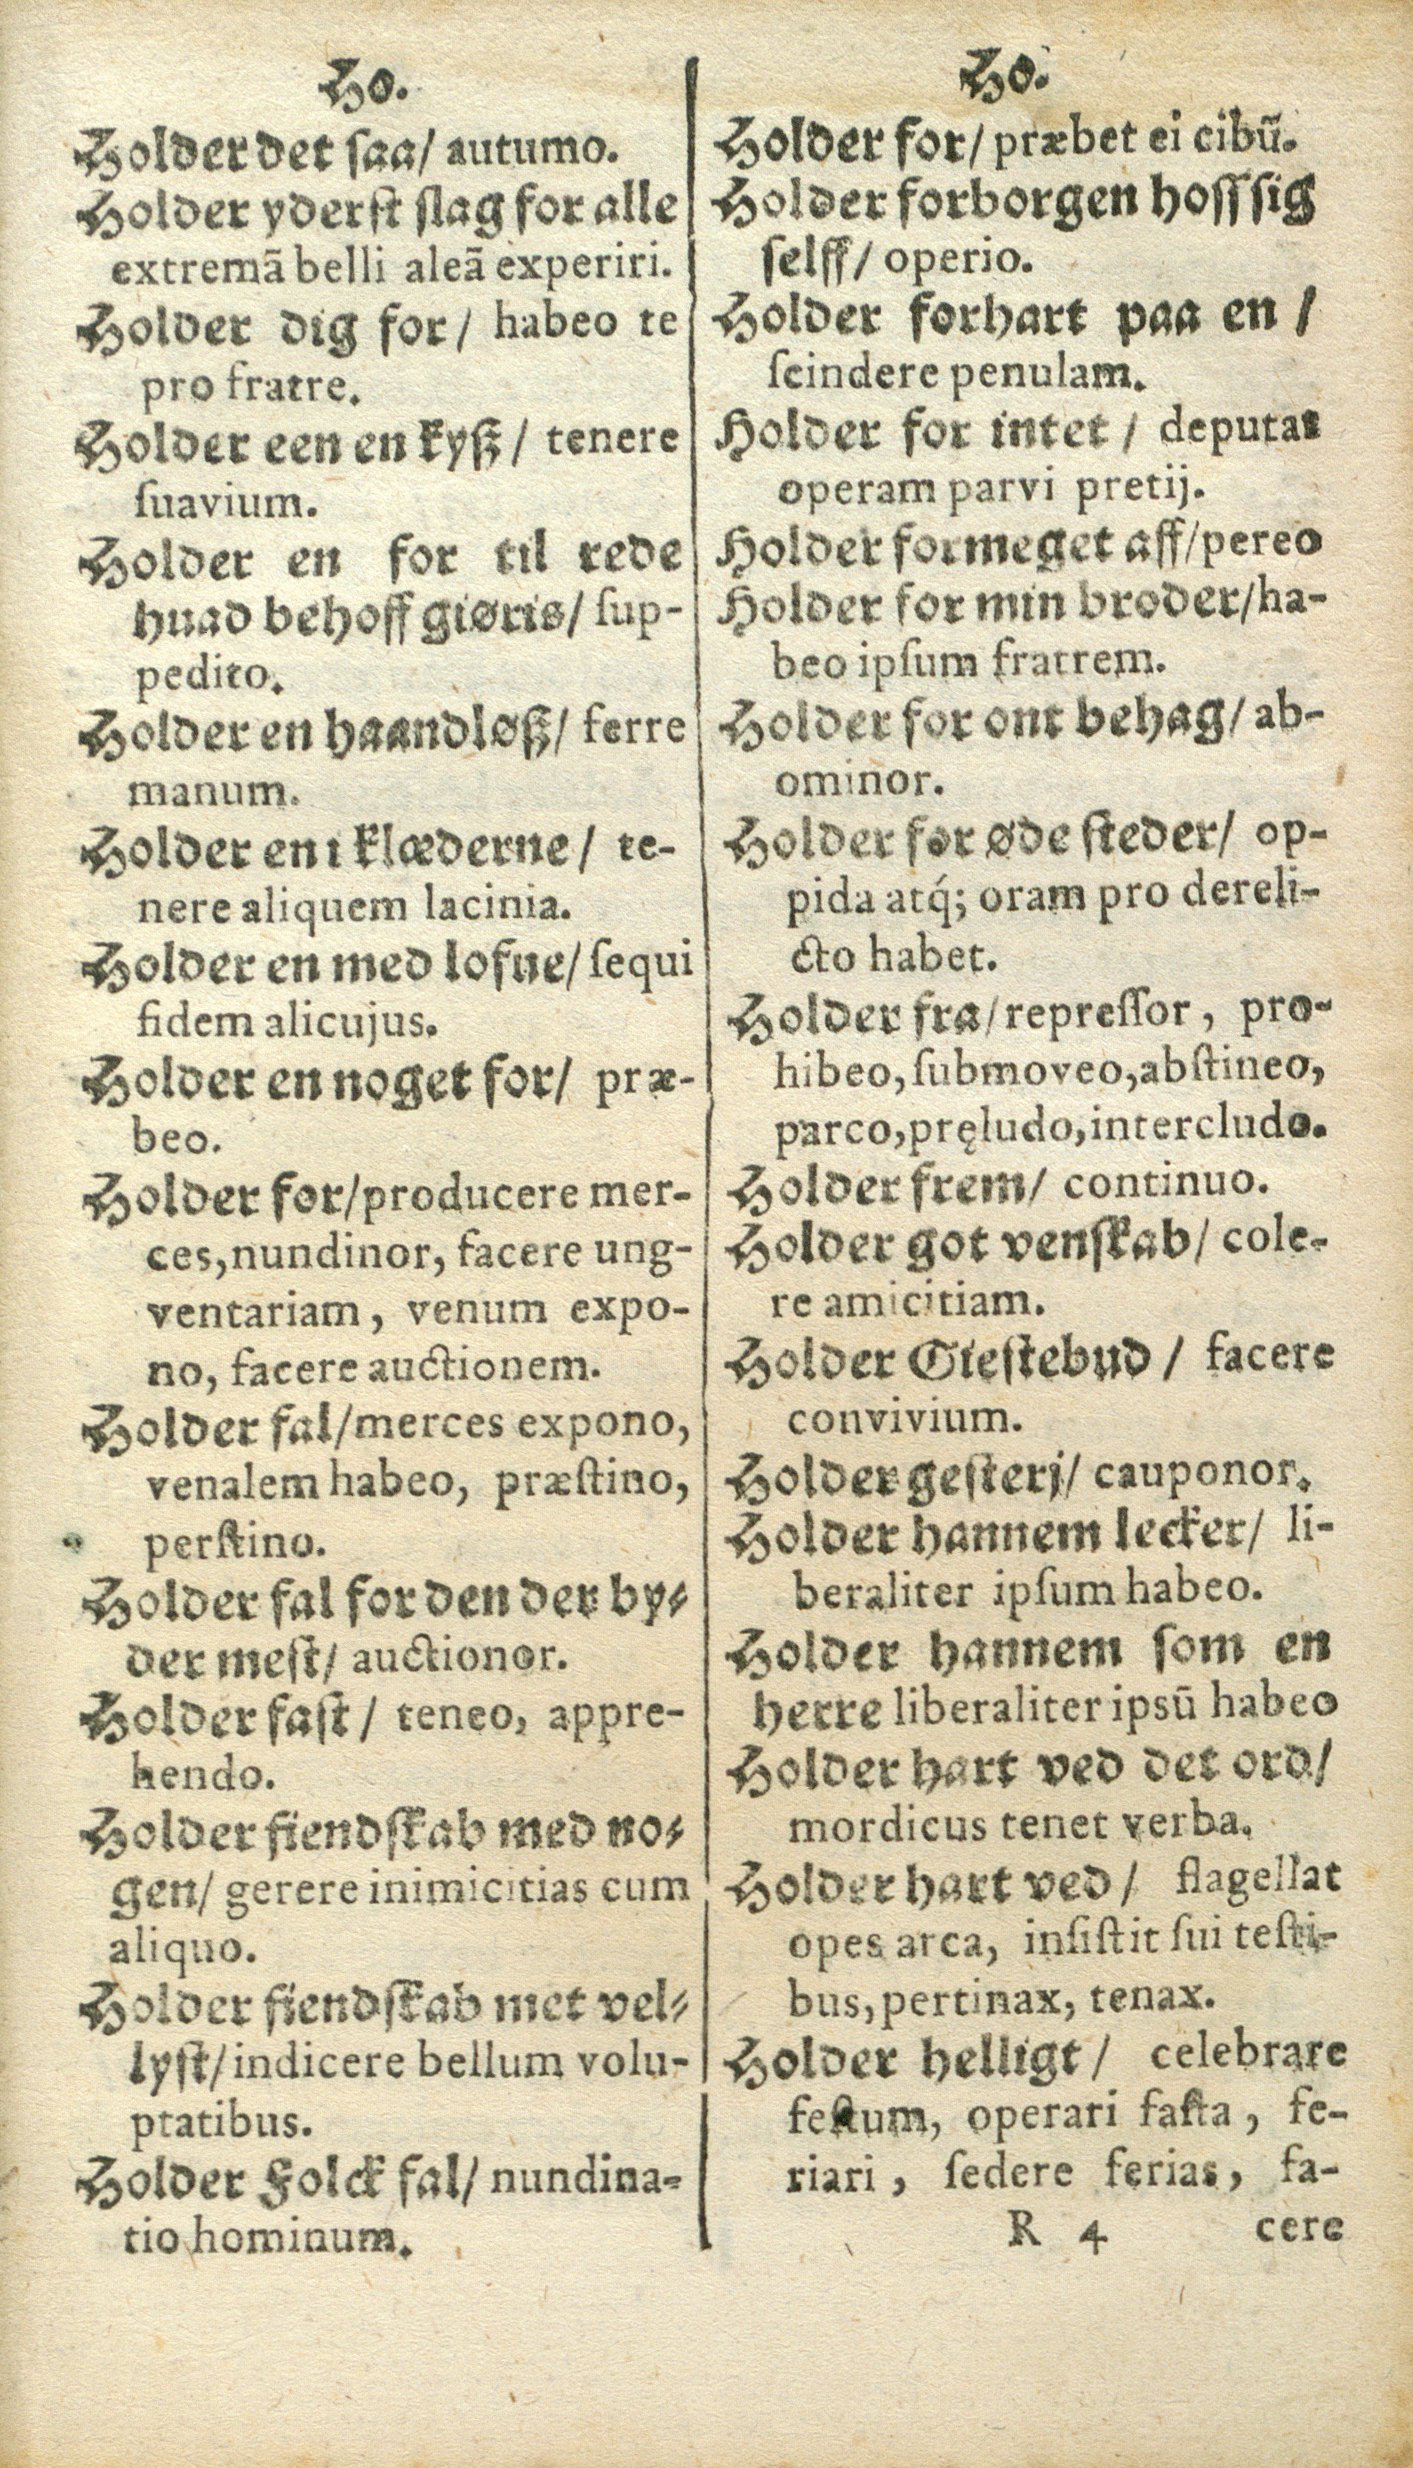 Ho.
Holder det ſaa/ autumo.
Holder yderſt ſlag for alle
extremã belli aleã experiri.
Holder dig for/ habeo te
pro fratre.
Holder een en kyſz/ tenere
ſuavium.
Holder en for til rede
huad behoff giøris/ ſup-
pedito.
Holder en haandløſz/ ferre
manum.
Holder en i klæderne/ te-
nere aliquem lacinia.
Holder en med lofue/ ſequi
fidem alicujus.
Holder en noget for/ præ-
beo.
Holder for/producere mer-
ces,nundinor, facere ung-
ventariam, venum expo-
no, facere auctionem.
Holder fal/merces expono,
venalem habeo, præſtino,
perſtino.
Holder fal for den der by-
der meſt/ auctionor.
Holder faſt/ teneo, appre-
hendo.
Holder fiendſkab med no-
gen/ gerere inimicitias cum
aliquo.
Holder fiendſkab met vel-
lyſt/indicere bellum volu-
ptatibus.
Holder Folck fal/ nundina-
tio hominum.
Ho.
Holder for/ præbet ei cibũ.
Holder forborgen hoſſ ſig
ſelff/ operio.
Holder forhart paa en /
ſcindere penulam.
Holder for intet / deputat
operam parvi pretij.
Holder formeget aff/pereo
Holder for min broder/ha-
beo ipſum fratrem.
Holder for ont behag/ ab-
ominor.
Holder for øde ſteder/ op-
pida atq́; oram pro dereli-
cto habet.
Holder fra/repreſſor, pro-
hibeo,ſubmoveo,abſtineo,
parco,pręludo,intercludo.
Holder frem/ continuo.
Holder got venſkab/ cole-
re amicitiam.
Holder Gieſtebud / facere
convivium.
Holder geſterj/ cauponor.
Holder hannem lecker/ li-
beraliter ipſum habeo.
Holder hannem ſom en
herre liberaliter ipsũ habeo
Holder hart ved det ord/
mordicus tenet verba.
Holder hart ved/ flagellat
opes arca, inſiſtit ſui teſti-
bus,pertinax, tenax.
Holder helligt/ celebrare
feſtum, operari faſta, fe-
riari, ſedere ferias, fa-
R 4 cere